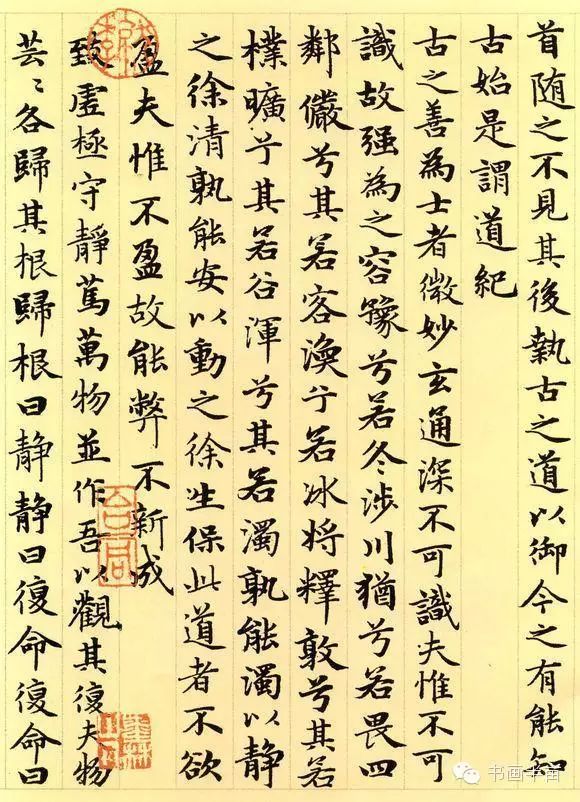 首随之不見其後執古之道以御今之有能知
古始是謂道紀
古之善為士者微妙玄通深不可識夫惟不可
識故强為之容豫兮若冬涉川猶兮若畏四
鄰儼兮其若客渙兮若冰將釋敦兮其若
樸曠兮其若谷渾兮其若濁孰能濁以静
之徐清孰能安以動之徐生保此道者不欲
盈夫惟不盈故能弊不新成
致虛極守靜篤萬物並作吾以觀其復夫物
芸〻各歸其根歸根曰静静曰復命復命曰
书画宇宙